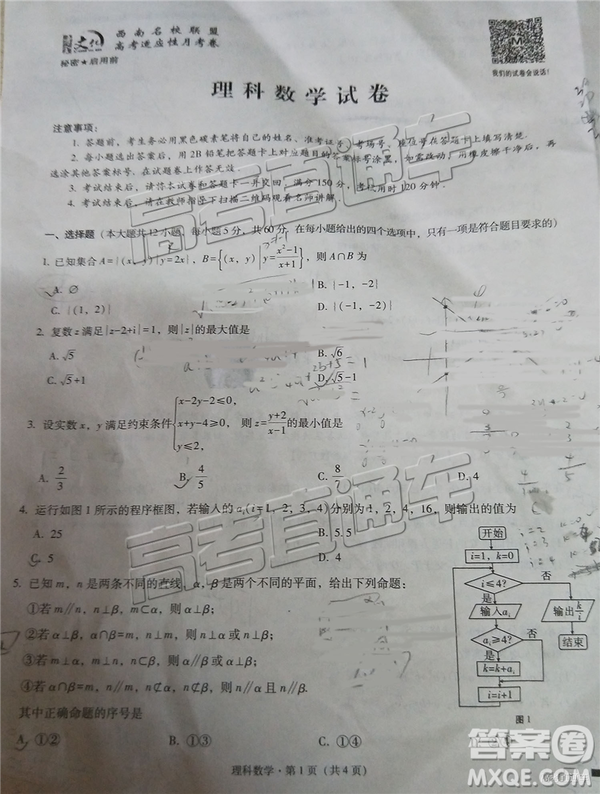 西南名校联盟
高考适应性月考卷
秘密★启用前
我们的试卷会说话!
理科数学试卷
注意事项:
1. 答题前,考生务必用黑色碳素笔将自己的姓名、准考证号、考场号、座位号在答题卡上填写清楚.
2. 每小题选出答案后,用2B铅笔把答题卡上对应题目的答案标号涂黑.如需改动,用橡皮擦干净后,再
选涂其他答案标号.在试题卷上作答无效.
3. 考试结束后,请将本试卷和答题卡一并交回.满分150分,考试用时120分钟.
4. 考试结束后,请在教师指导下扫描二维码观看名师讲解.
一、选择题(本大题共12小题,每小题5分,共60分.在每小题给出的四个选项中,只有一项是符合题目要求的)
1. 已知集合A={(x, y)|y=2x},B={(x, y)|y=(x²-1)/(x+1)},则A∩B为
A. ∅
B. {(-1, -2)}
C. {(1, 2)}
D. {-1, -2}
2. 复数z满足|z-2+i|=1,则|z|的最大值是
A. √5
B. √6
C. √5+1
D. √5-1
3. 设实数x,y满足约束条件{x-2y-2≤0, x+y-4≥0, y≤2, 则z=(y+2)/(x-1)的最小值是
A. 2/3
B. 4/5
C. 8/
D. 4
4. 运行如图1所示的程序框图,若输入的aᵢ(i=1, 2, 3, 4)分别为1,2,4,16,则输出的值为
A. 25
B. 5.5
C. 5
D. 4
5. 已知m,n是两条不同的直线,α,β是两个不同的平面,给出下列命题:
①若m∥n,n⊥β,m⊂α,则α⊥β;
②若α⊥β,α∩β=m,n⊥m,则n⊥α或n⊥β;
③若m⊥α,m⊥n,n⊂β,则α∥β或α⊥β;
④若α∩β=m,n∥m,n⊄α,n⊄β,则n∥α且n∥β.
其中正确命题的序号是
A. ①②
B. ①③
C. ①④
开始
i=1, k=0
i≤4?
否
是
输入aᵢ
输出k/i
aᵢ≥4?
否
结束
是
k=k+aᵢ
i=i+1
图1
理科数学·第1页(共4页)
高考直通车
高考直通车
高考直通车
答案卷